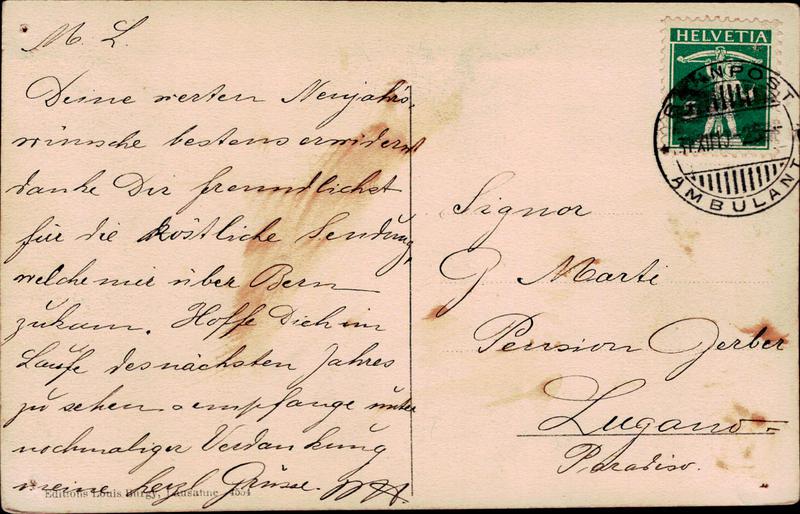 M. L.
Deine werten Neujahrs-
wünsche bestens erwidernd
danke Dir freundlichst
für die köstliche Sendung,
welche mir über Bern
zukam. Hoffe Dich im
Laufe des nächsten Jahres
zu sehen & empfange unter
nochmaliger Verdankung
meine herzl Grüsse.
Editions Louis Burgy, Lausanne 4554
HELVETIA
BAHNPOST
AMBULANT
Signor
G Marti
Pension Gerber
Lugano-
Paradiso.